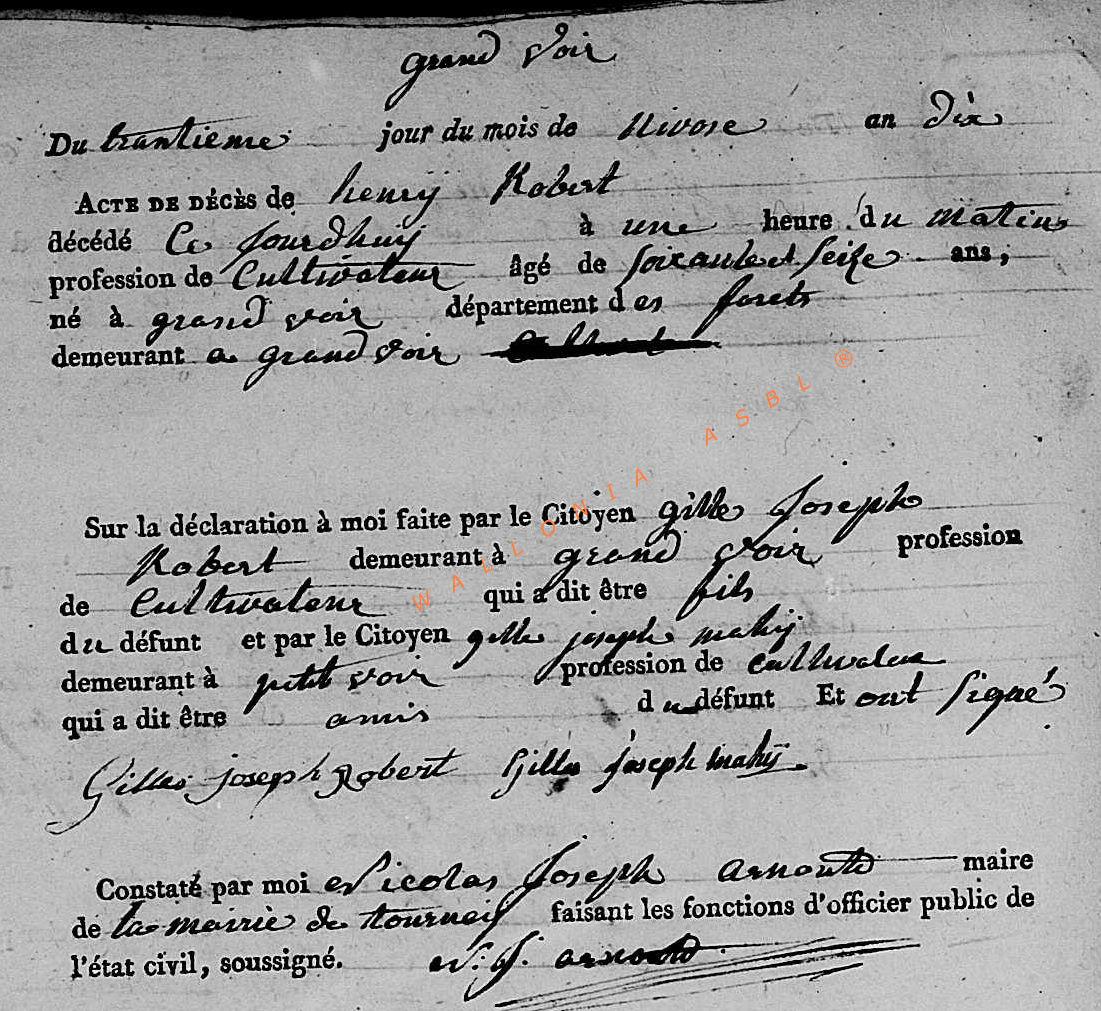 grand voir
Du trantieme jour du mois de Nivose an dix
ACTE DE DÉCÈS de henrÿ Robert
décédé Ce jourdhuÿ à une heure du matins
profession de Cultivateur âgé de soixante et seize ans ;
né à grand voir département des forets
demeurant a grand voir
WALLONIA ASBL ®
Sur la déclaration à moi faite par le Citoyen gille Joseph
Robert demeurant à grand voir profession
de Cultivateur qui a dit être fils
du défunt et par le Citoyen gille joseph mahÿ
demeurant à petit voir profession de cultivateur
qui a dit être amis du défunt Et ont signé
Gilles joseph Robert Gilles joseph mahÿ.
Constaté par moi Nicolas Joseph arnould maire
de la mairie de tournaÿ faisant les fonctions d'officier public de
l'état civil, soussigné. N. J. arnould